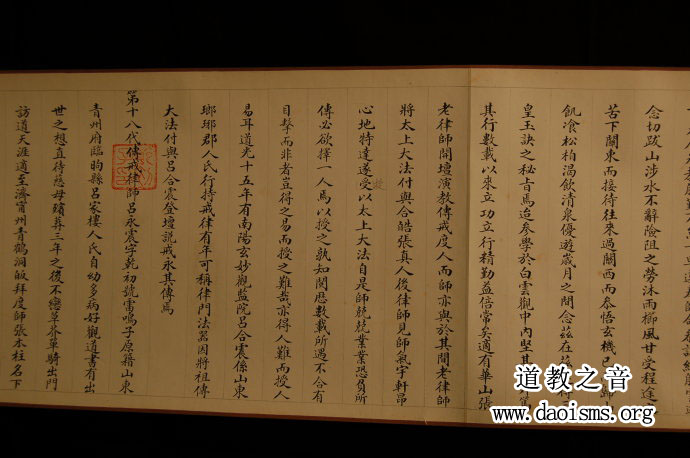 念切跋山涉水不辭險阻之勞沐雨櫛風甘受程途
苦下關東而接待往來過關西而叅悟玄機已
飢飡松柏渴飲清泉優遊歲月之間念茲在茲
皇玉訣之秘旨焉迨叅學於白雲觀中內堅其
其行數載以來立功立行精勤益倍常矣適有華山張
老律師開壇演教傳戒度人而師亦與於其間老律師
將太上大法付與合皓張真人後律師見師氣宇軒昂
心地特達遂受以太上大法自是師兢兢業業恐負所
授
傳必欲擇一人焉以授之孰知閱歷數載所遇不合有
目擊而非者豈得之易而授之難哉亦得人難而授人
易耳道光十五年有南陽玄妙觀監院呂合震係山東
瑯琊郡人民行持戒律有年可稱律門法器因將祖傳
大法付與呂合震登壇說戒永其傳焉
第十八代傳戒律師呂永震字乾初號雷鳴子原籍山東
青州府臨朐縣呂家樓人氏自幼多病好觀道書有出
世之想直待慈母殯葬三年之後不戀草芥單騎出門
訪道天涯適至濟甯州青鶴洞皈拜度師張本柱名下
道教之音
www.daoisms.org